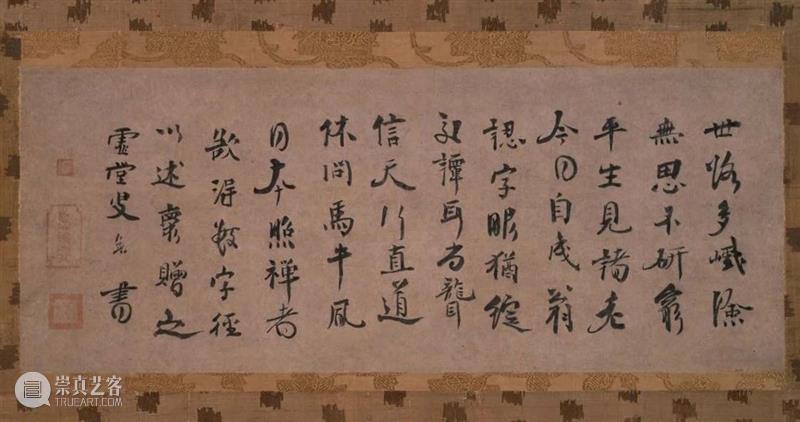 世路多巇嶮
無思不研窮
平生見諸老
今日自成翁
認字眼猶綻
交譚耳尚聾
信天行直道
休問馬牛風
日本照禅者
欲得數字徑
以述懷贈之
虛堂叟 書
崇真艺客
TRUEART.COM